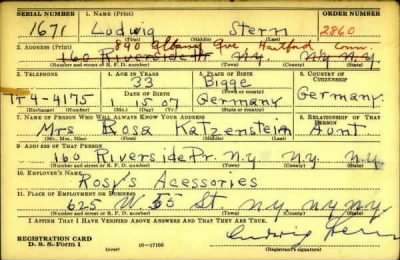 SERIAL NUMBER 1. NAME (Print) ORDER NUMBER
1671 Ludwig Stern 2860
(First) (Middle) (Last)
2. ADDRESS (Print) 890 Albany Ave Hartford Conn.
160 Riverside Dr. N.Y. N.Y. N.Y.
(Number and street or R. F. D. number) (Town) (County) (State)
3. TELEPHONE 4. AGE IN YEARS 5. PLACE OF BIRTH 6. COUNTRY OF CITIZENSHIP
33 Bigge
DATE OF BIRTH (Town or county)
Tr 4-4175 1 15 07 Germany Germany
(Exchange) (Number) (Mo.) (Day) (Yr.) (State or country)
7. NAME OF PERSON WHO WILL ALWAYS KNOW YOUR ADDRESS 8. RELATIONSHIP OF THAT PERSON
Mrs Rosa Katzenstein Aunt
(Mr., Mrs., Miss) (First) (Middle) (Last)
9. ADDRESS OF THAT PERSON
160 Riverside Dr. N.Y. N.Y. N.Y.
(Number and street or R. F. D. number) (Town) (County) (State)
10. EMPLOYER'S NAME
Rosy's Acessories
11. PLACE OF EMPLOYMENT OR BUSINESS
625 W. 55 St. N.Y. N.Y. N.Y.
(Number and street or R. F. D. number) (Town) (County) (State)
I AFFIRM THAT I HAVE VERIFIED ABOVE ANSWERS AND THAT THEY ARE TRUE.
REGISTRATION CARD
D. S. S. Form 1 16-17105 Ludwig Stern
(Registrant's signature)